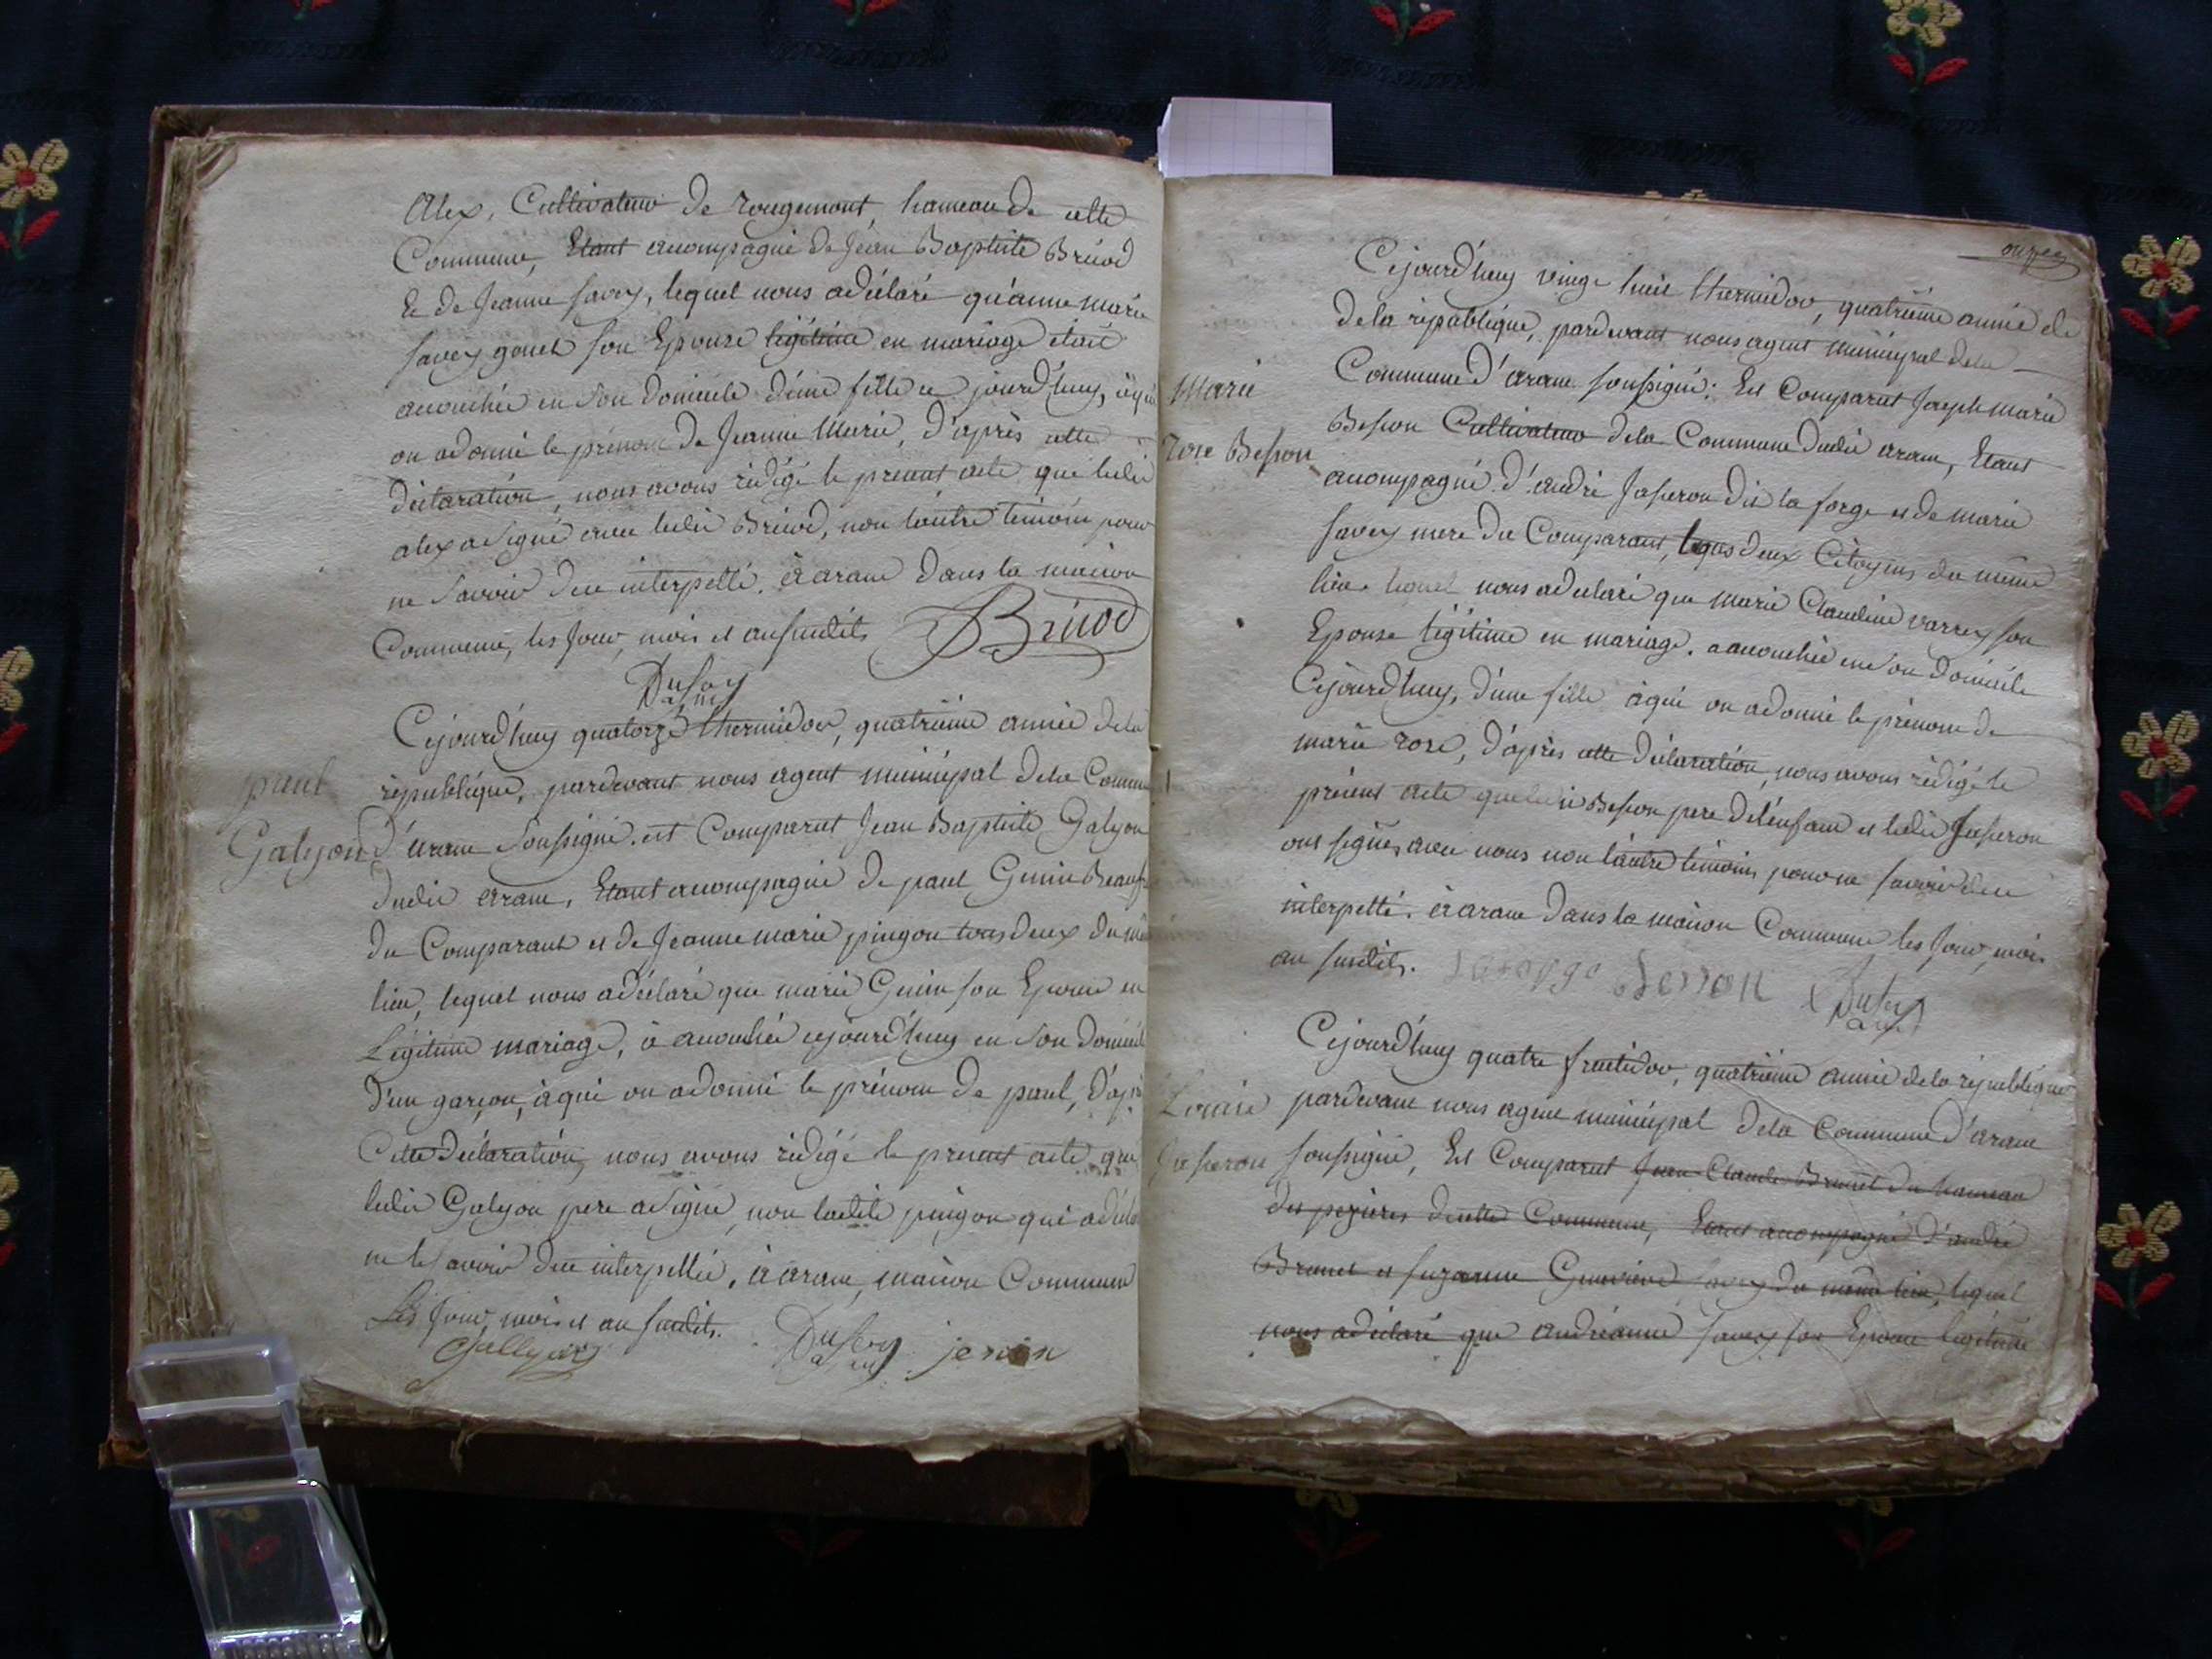 Alex, Cultivateur de rougemont, hameau de cette
Commune, Etant acompagné de Jean Baptiste Brüod
Et de Jeanne savey, lequel nous a déclaré qu'anne marie
savey gonet son Epouse légitime en mariage était
acouchée en son domicile d'une fille ce jourd'huy, à qui
on a donné le prénom de Jeanne Marie, d'après cette
déclaration, nous avons rédigé le présent acte que ledit
alex a signé avec ledit Brüod, non l'autre témoin pour
ne savoir de ce interpellé. à arane dans la maison
Commune, les Jour, mois et an susdits
Brüod
Dufey
agent
paul
Galyon
Cejourd'huy quatorze thermidor, quatrième année de la
république, pardevant nous agent municipal de la Commune
d'arane soussigné. est Comparut Jean Baptiste Galyon
dudit arane, Etant acompagné de paul Genin
du Comparant et de Jeanne marie pingon tous deux du
lieu, lequel nous a déclaré que marie Genin son Epouse en
Légitime mariage, à acouchée cejourd'huy en son domicile
d'un garçon, à qui on a donné le prénom de paul, d'après
Cette déclaration, nous avons rédigé le présent acte que
ledit Galyon pere a signé, non ladite pingon qui a déclaré
ne le savoir de ce interpellée, à arane, maison Commune
Les Jour, mois et an susdits.
Gallyon
Dufey
agent
jenin
onze
Marie
rose Besson
Cejourd'huy vingt huit thermidor, quatrième année de
de la république, pardevant nous agent municipal de la
Commune d'arane soussigné: Est Comparut Joseph marie
Besson Cultivateur de la Commune dudit arane, Etant
acompagné d'andré Juseron dit la forge et de marie
savey mere du Comparant, deux Citoyens du même
lieu. lequel nous a déclaré que marie Claudine varrey son
Epouse légitime en mariage. a acouchée en son domicile
Cejourd'huy, d'une fille à qui on a donné le prénom de
marie rose, d'après cette déclaration, nous avons rédigé le
présent acte que ledit Besson pere de l'enfant et ledit Juseron
ont signés avec nous non l'autre témoin pour ne savoir de ce
interpellé. à arane dans la maison Commune les Jour, mois
an susdits.
Laforge Besson Dufey
agent
Louise
Juseron
Cejourd'huy quatre fructidor, quatrième année de la république
pardevant nous agent municipal de la Commune d'arane
soussigné, Est Comparut Jean Claude Brunet du hameau
des pezieres de cette Commune, Etant acompagné d'andré
Brunet et suzanne Genevieve savey du même lieu, lequel
nous a déclaré que andréanne savey son Epouse légitime